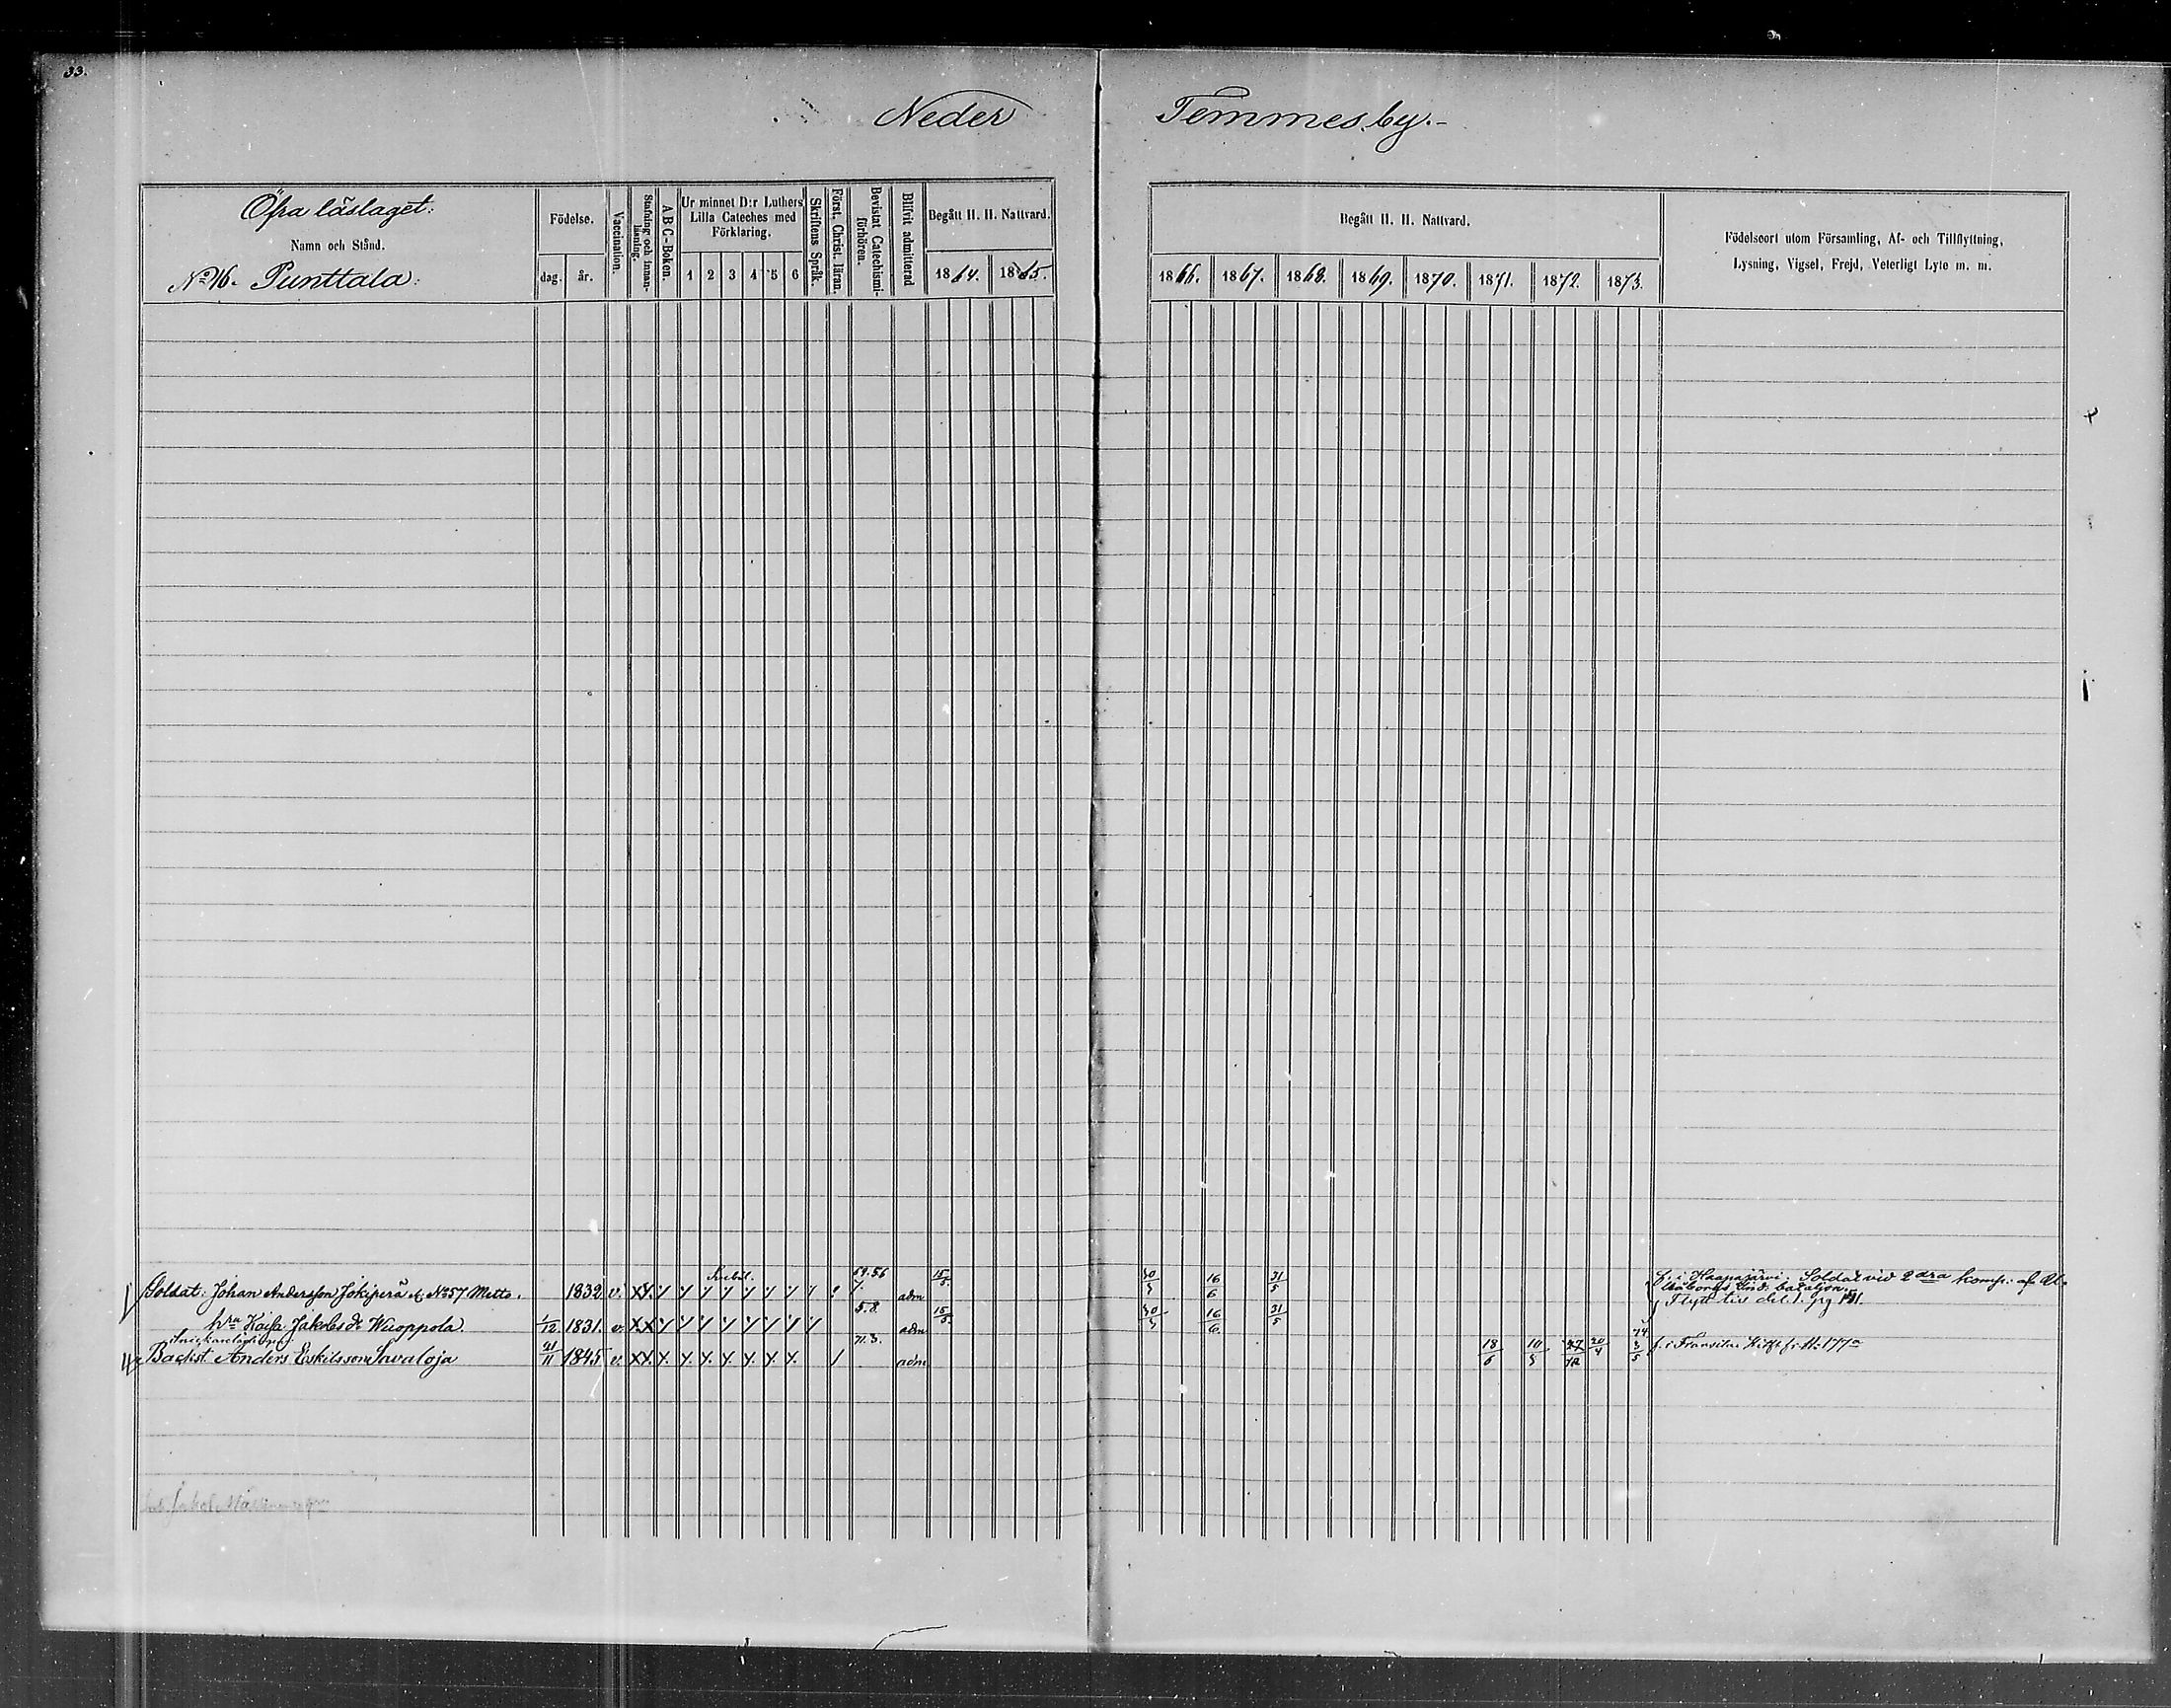 33.
Neder Temmes by.-
Öfra läslaget:
Namn och Stånd.
No 16. Punttala:
Födelse.
dag. år.
Vaccination.
Stafning och innan-läsning.
A B C-Boken.
Ur minnet D:r Luthers Lilla Cateches med Förklaring.
1 2 3 4 5 6
Skriftens Språk.
Först. Christ. läran.
Bevistat Catechismi-förhören.
Blifvit admitterad
Begått H. H. Nattvard.
1864. 1865.
Begått H. H. Nattvard.
1866. 1867. 1868. 1869. 1870. 1871. 1872. 1873.
Födelseort utom Församling, Af- och Tillflyttning,
Lysning, Vigsel, Frejd, Veterligt Lyte m. m.
Soldat: Johan Andersson Jokiperä No 57 Metto. 1832 v. adm 15/5. 30/5 16/6 31/5 f. i Haapajärvi. Soldat vid 2dra komp: af
Flytt till del. 1. pg 151.
hru Kaisa Jakobsdr Wuoppola. 1/12 1831. v. 5.8. adm 15/5. 30/5 16/6. 31/5
Backst. Anders Eskilsson Savaloja 21/11 1845 v. 71.3. adm 18/6 10/5 27/12 20/4 74 3/5 f. i Frantsila